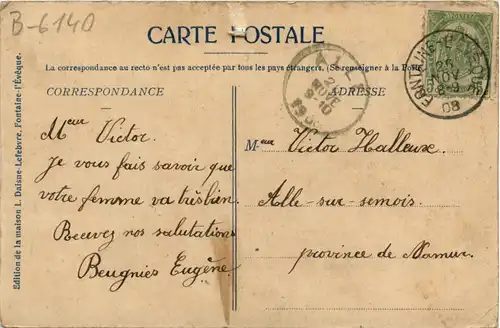 B-6140
CARTE POSTALE
La correspondance au recto n'est pas acceptée par tous les pays étrangers. (Se renseigner à la Poste
CORRESPONDANCE
ADRESSE
Edition de la maison L. Daisne-Lefebvre, Fontaine-l'Évêque.
Meur Victor.
Je vous fais savoir que
votre femme va très bien.
Recevez nos salutations
Beugnies Eugène.
Meur Victor Halleux.
Alle-sur-semois.
province de Namur.
FONTAINE-L'EVEQUE
20
NOV
8-9
08
NOV
8-10